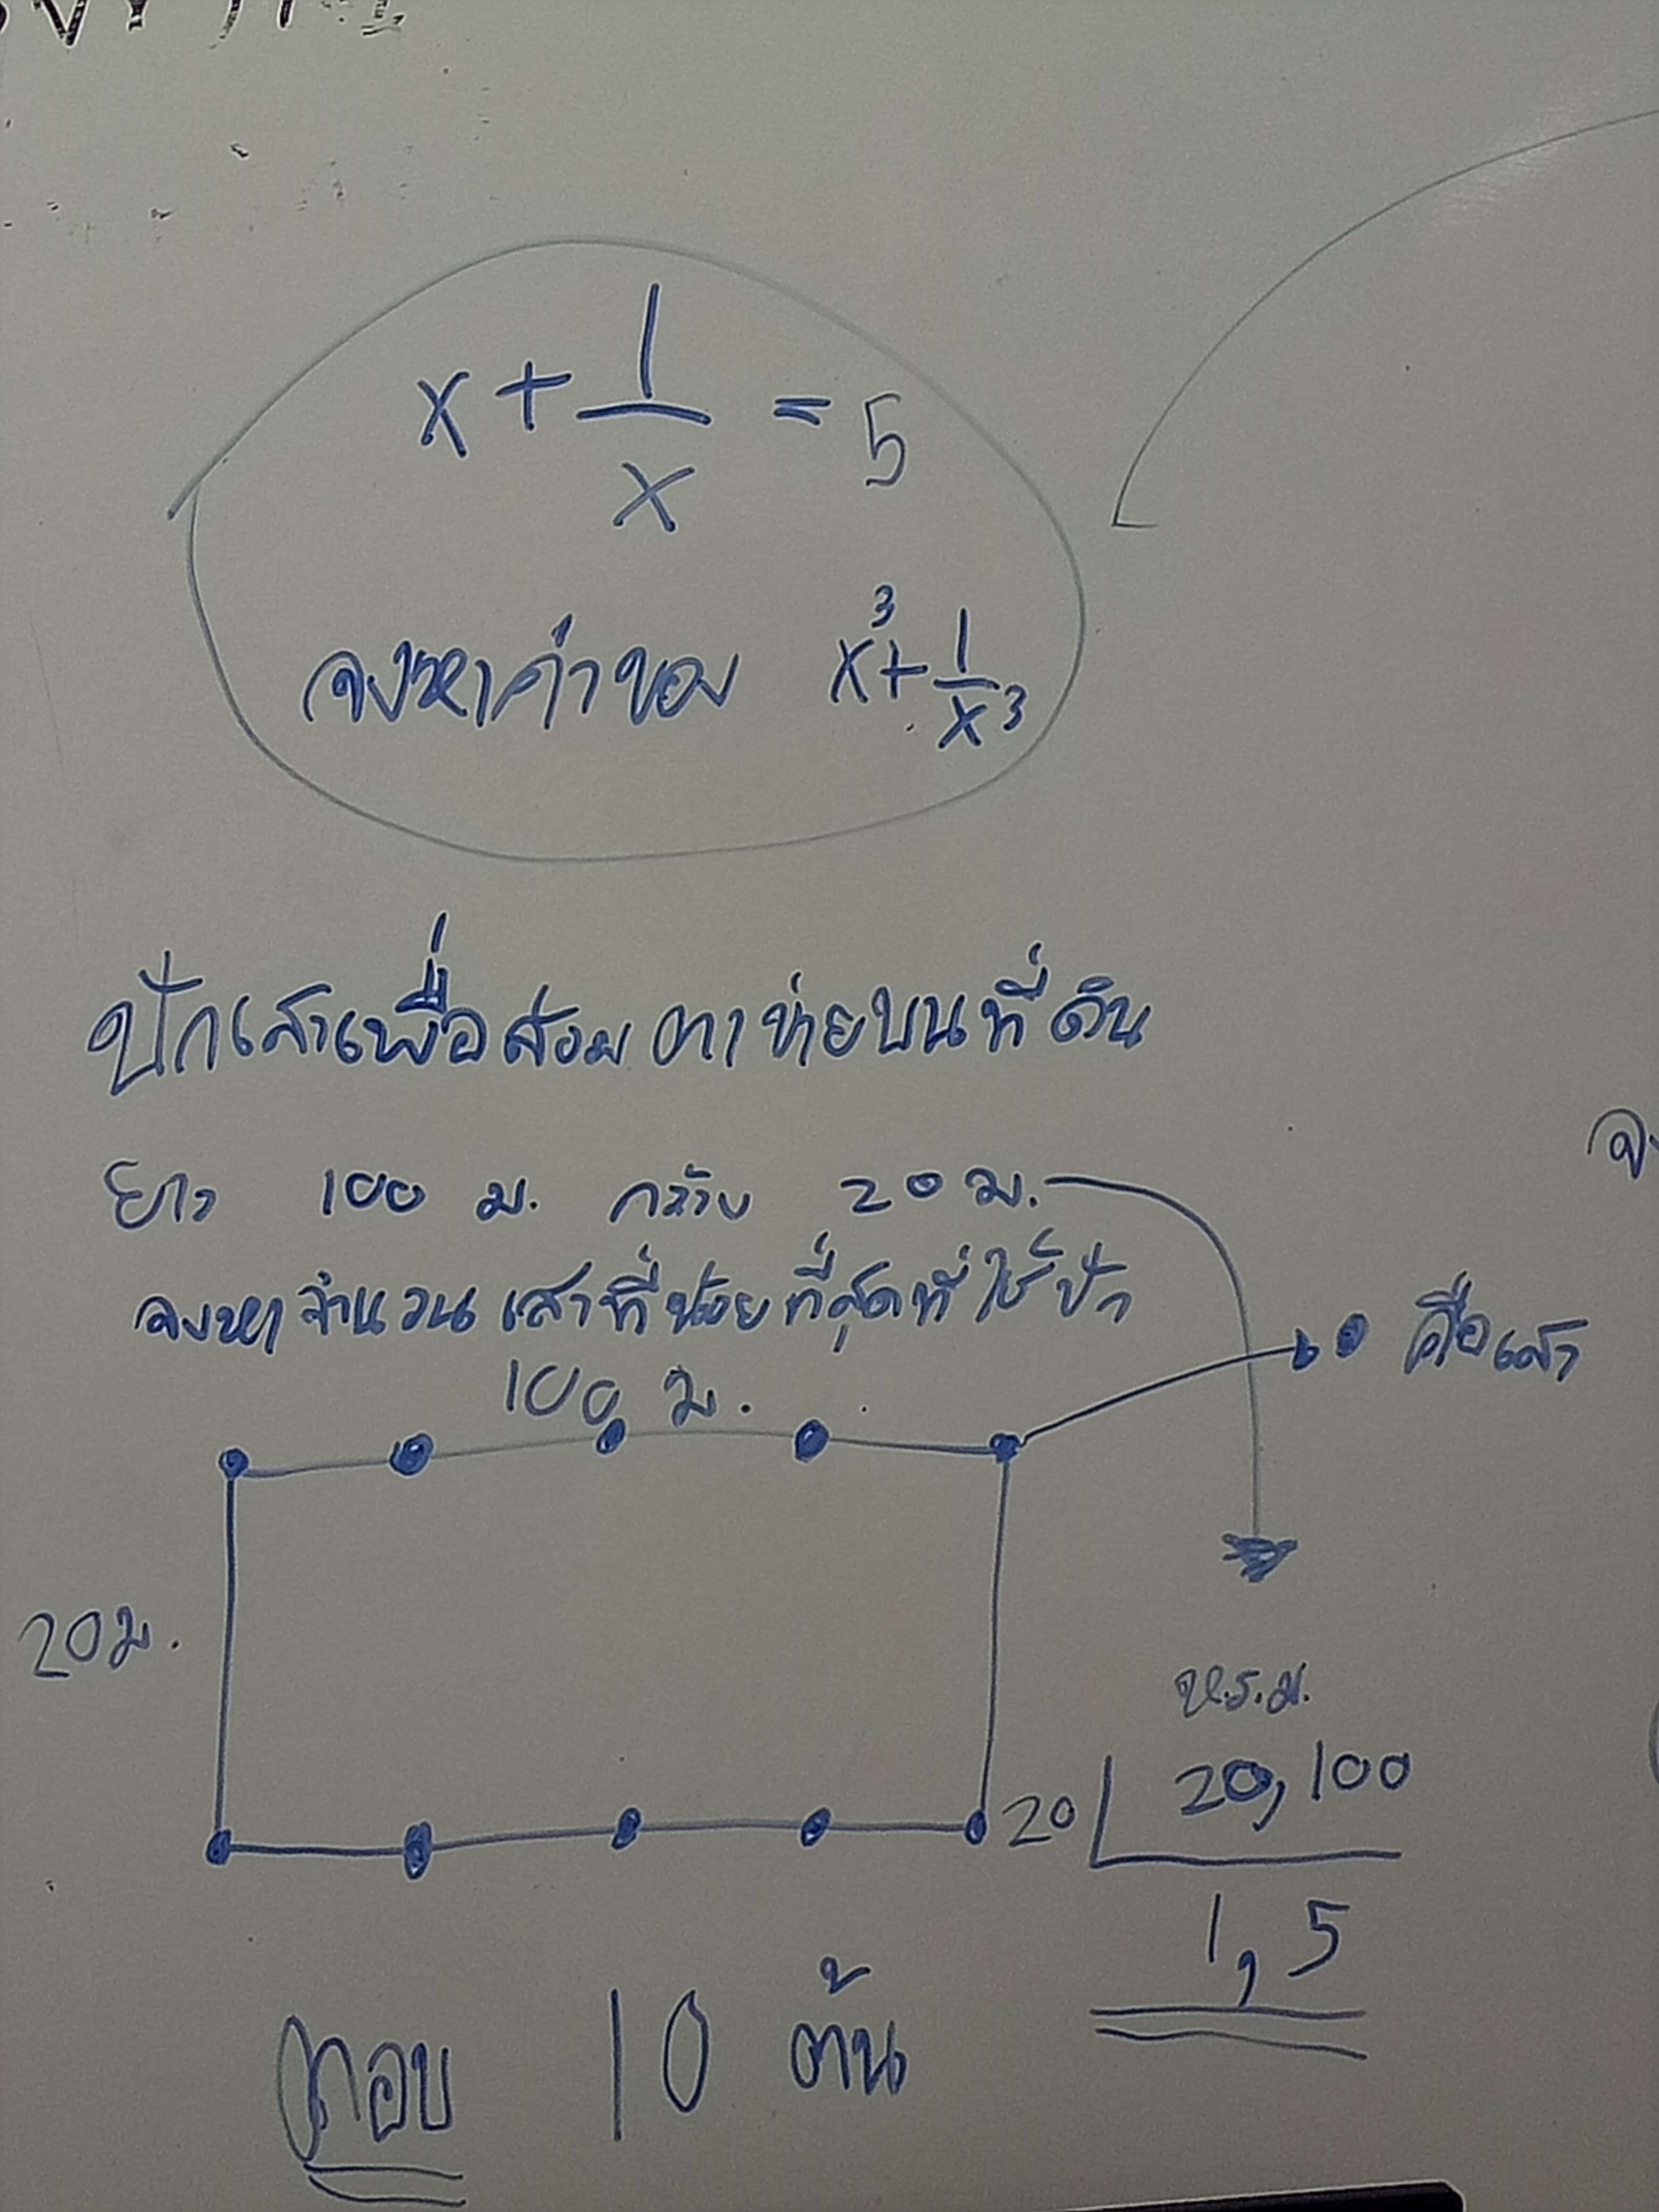 x + 1/x = 5
จงหาค่าของ x³ + 1/x³
ปักเสาเพื่อล้อมตาข่ายบนที่ดิน
ยาว 100 ม. กว้าง 20 ม.
จงหาจำนวนเสาที่น้อยที่สุดที่ใช้ปัก
100 ม.
คือเสา
20 ม.
ห.ร.ม.
20 20, 100
1, 5
ตอบ 10 ต้น